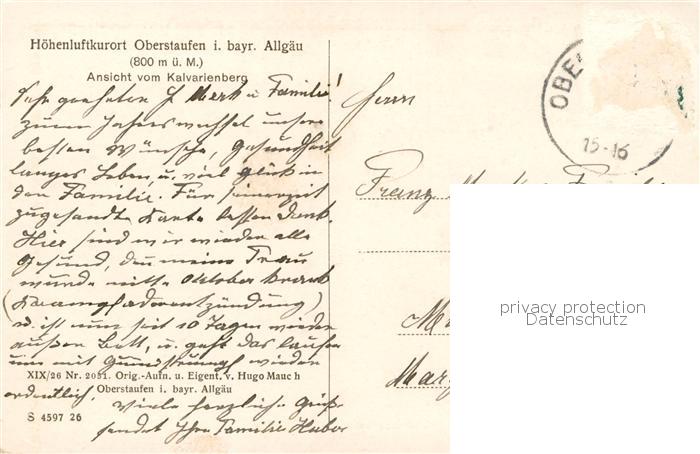 Höhenluftkurort Oberstaufen i. bayr. Allgäu
(800 m ü. M.)
Ansicht vom Kalvarienberg
Sehr geehrten H Merk u Familie!
zum Jahreswechsel unsere
besten Wünsche, Gesundheit
langes Leben, u. viel Glück in
der Familie. Für seinerzeit
zugesandte Karte besten Dank.
Hier sind wir wieder alle
Gesund, den meine Frau
wurde mitte Oktober krank
(Krampfaderentzündung)
u. ist nun seit 10 Tagen wieder
außer Bett, u. geht das laufen
nun mit Gummistrumpf wieder
XIX/26 Nr. 2051. Orig.-Aufn. u. Eigent. v. Hugo Mauch
Oberstaufen i. bayr. Allgäu
ordentlich.
S 4597 26
Viele herzliche Grüße
sendet Ihre Familie Huber
Herrn
Franz
Mar
OBE
15-16
privacy protection
Datenschutz